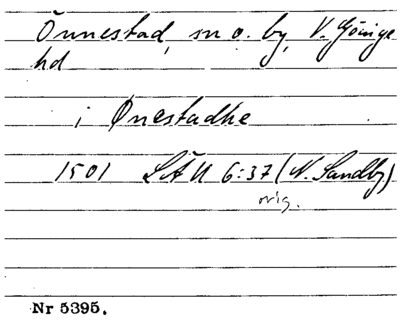 Önnestad, sn o. by, V. Göinge
hd
i Ønestadhe
1501 LÄU 6:37 (N. Sandby)
orig.
Nr 5395.